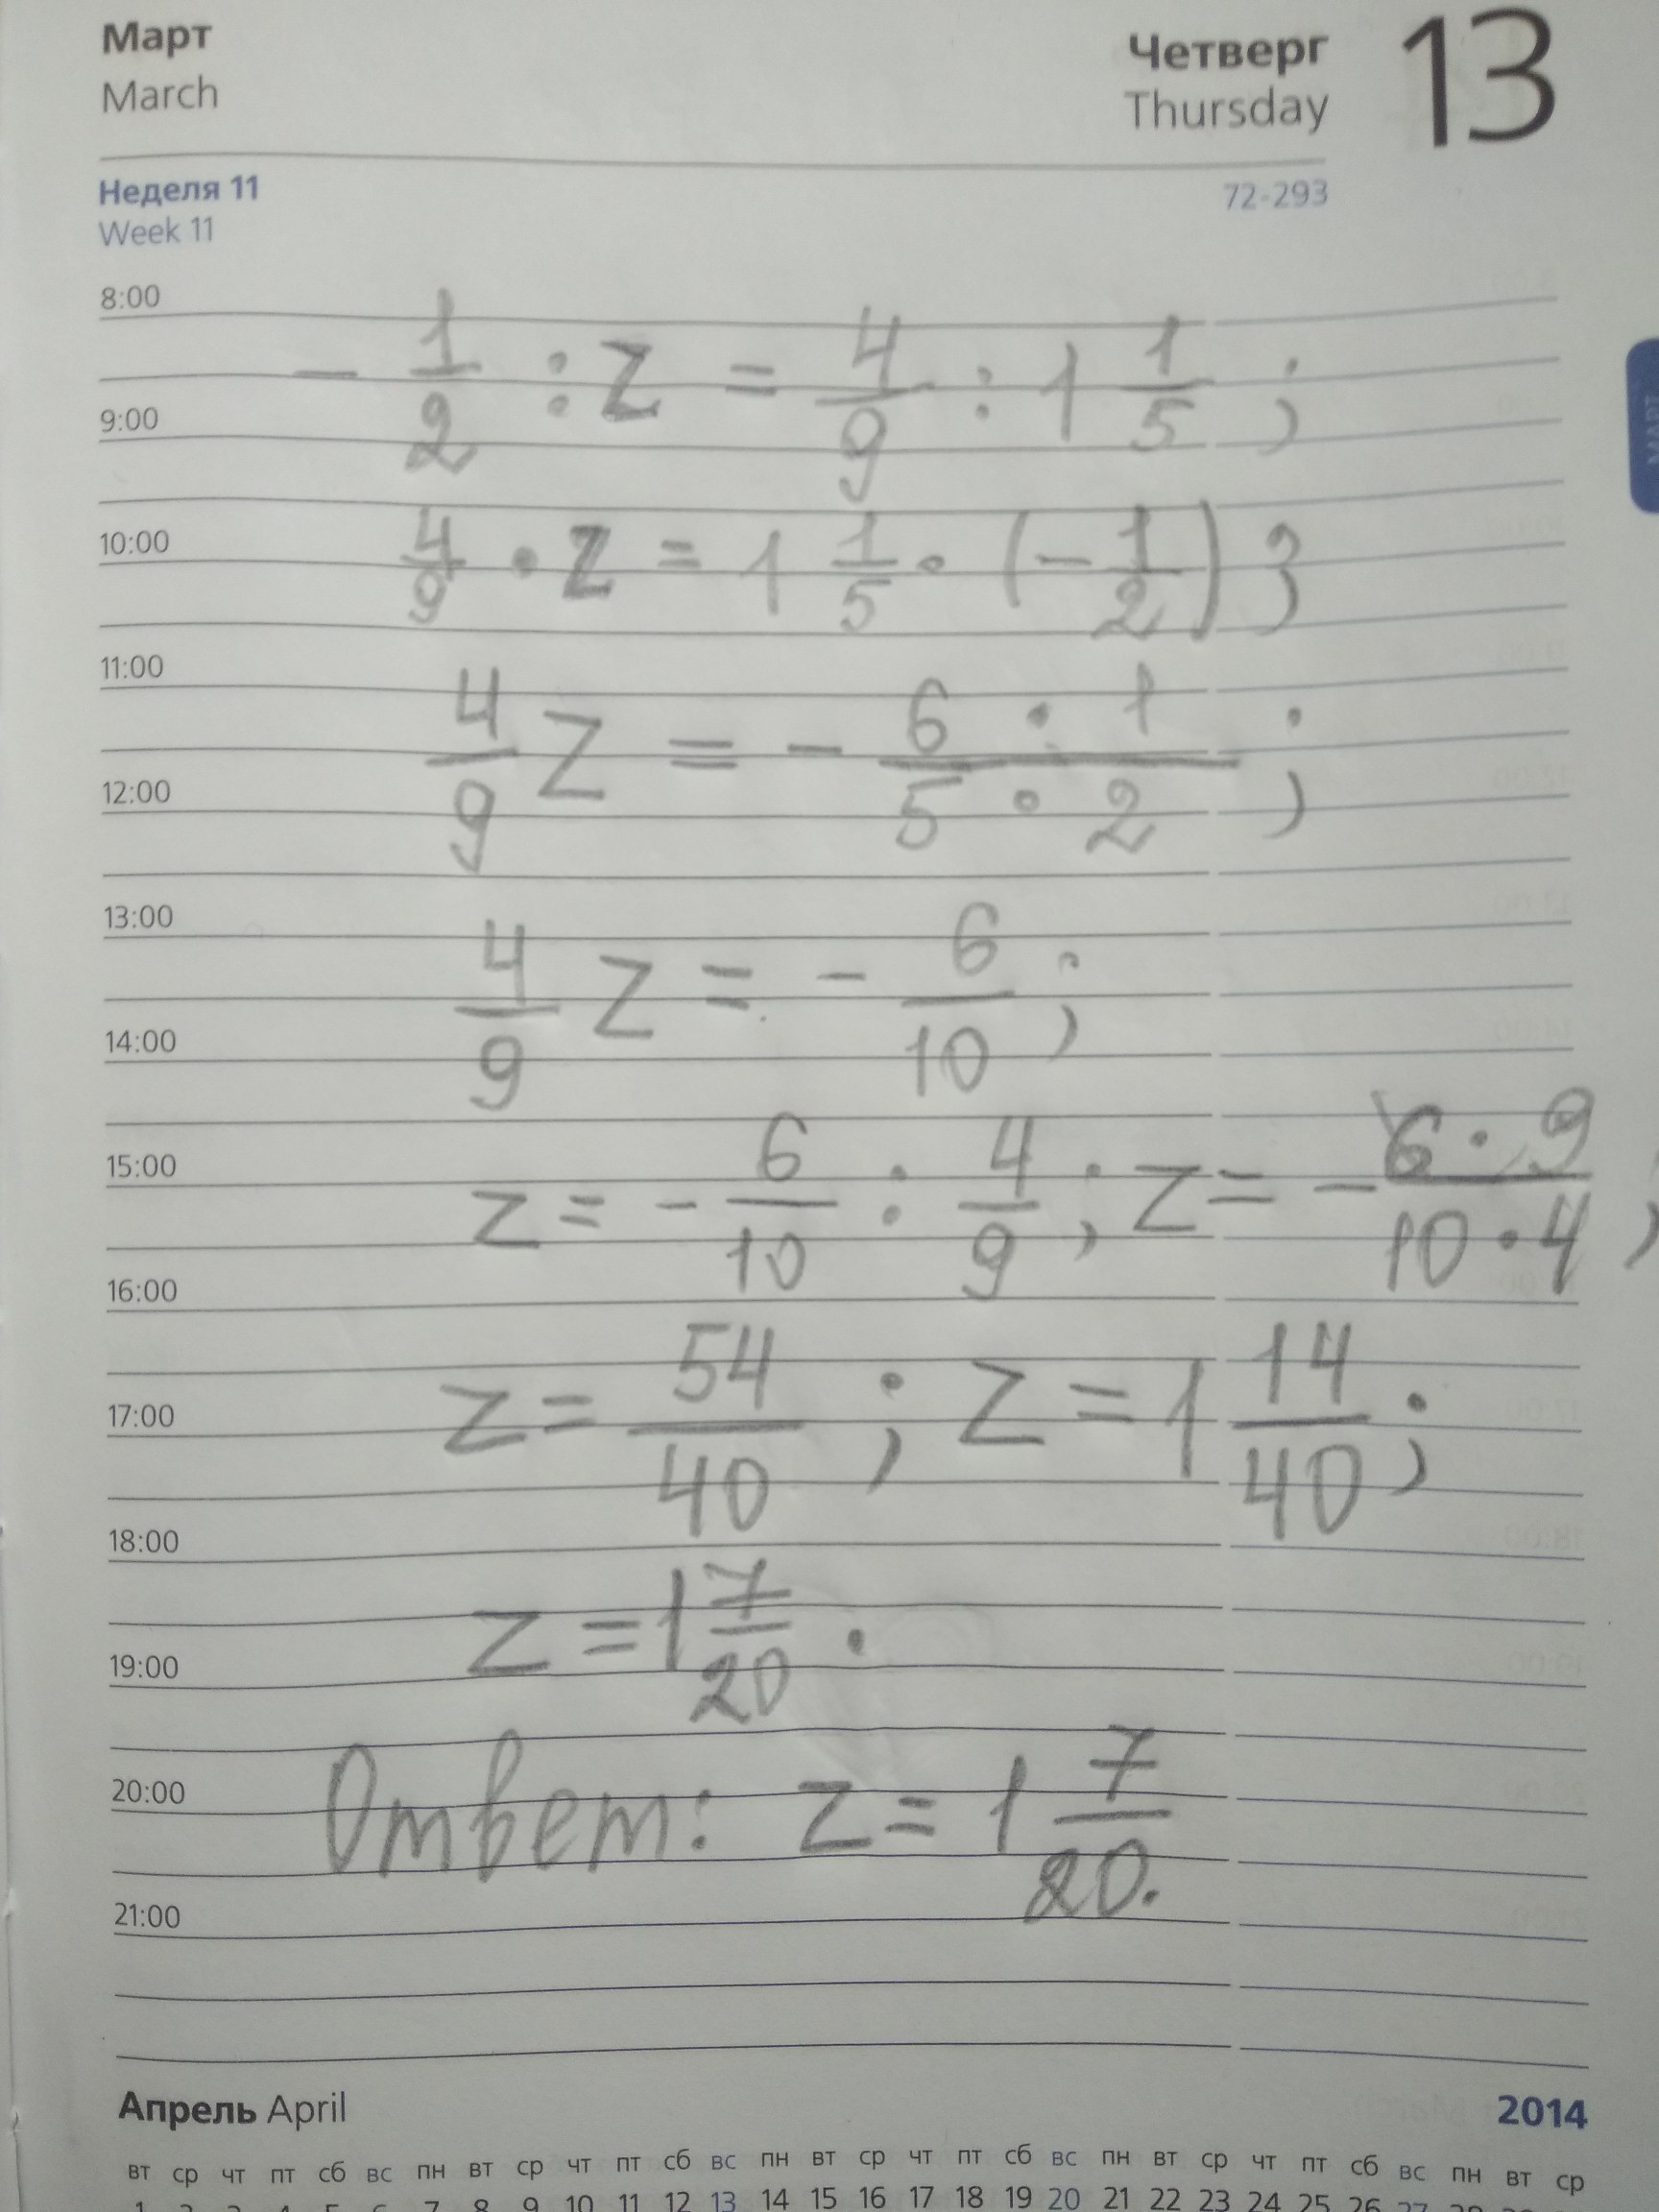 Март
March
Четверг
Thursday
13
Неделя 11
Week 11
72-293
МАРТ
8:00
- 1/2 : z = 4/9 : 1 1/5 ;
9:00
10:00
4/9 · z = 1 1/5 · (- 1/2) ;
11:00
4/9 z = - 6 · 1 / 5 · 2 ;
12:00
13:00
4/9 z = - 6/10 ;
14:00
15:00
z = - 6/10 : 4/9 ; z = - 6 · 9 / 10 · 4 ;
16:00
z = 54/40 ; z = 1 14/40 ;
17:00
18:00
z = 1 7/20 .
19:00
20:00
Ответ: z = 1 7/20.
21:00
Апрель April
2014
вт ср чт пт сб вс пн вт ср чт пт сб вс пн вт ср чт пт сб вс пн вт ср чт пт сб вс пн вт ср
1 2 3 4 5 6 7 8 9 10 11 12 13 14 15 16 17 18 19 20 21 22 23 24 25 26 27 28